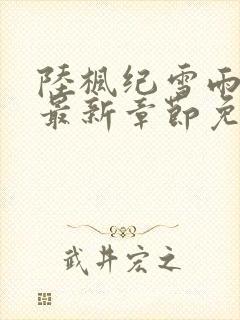 陸楓纪雪雨
最新章節免
武井宏之